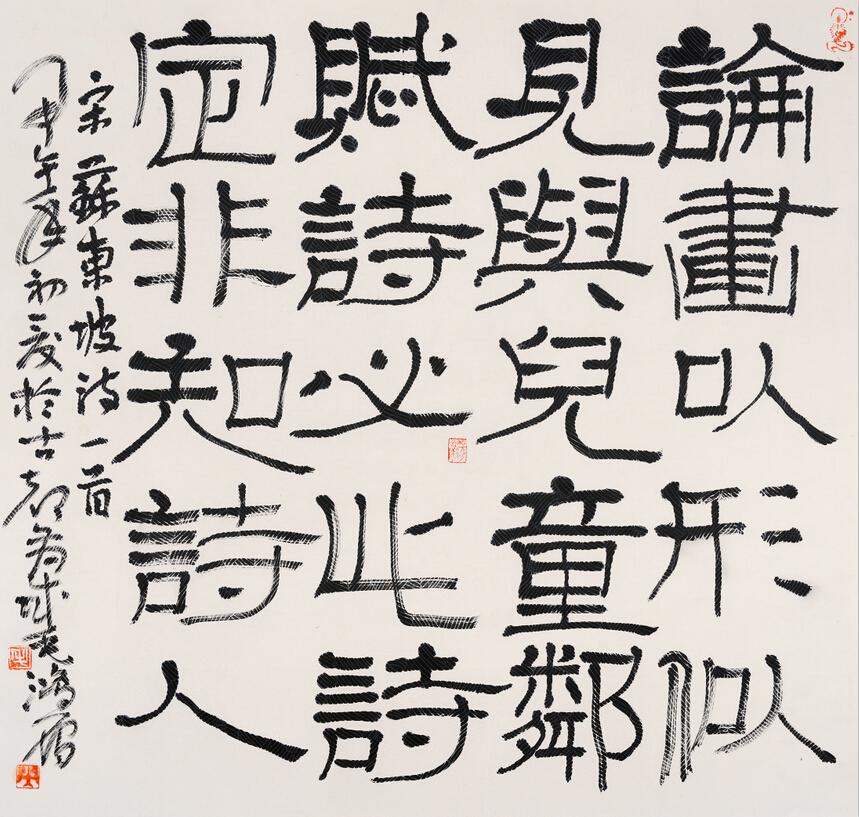 論畫以形似
見與兒童鄰
賦詩必此詩
定非知詩人
宋蘇東坡诗一首
甲午年初夏於古都城鴻